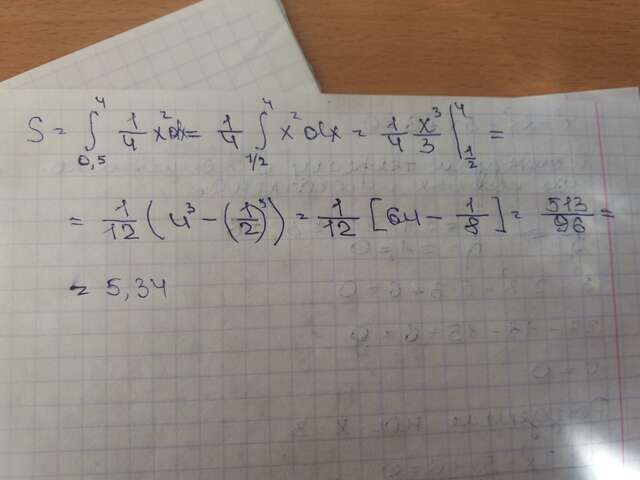 S = ∫_{0,5}^{4} 1/4 x² dx = 1/4 ∫_{1/2}^{4} x² dx = 1/4 x³/3 |_{1/2}^{4} =
= 1/12 (4³ - (1/2)³) = 1/12 [64 - 1/8] = 513/96 =
= 5,34